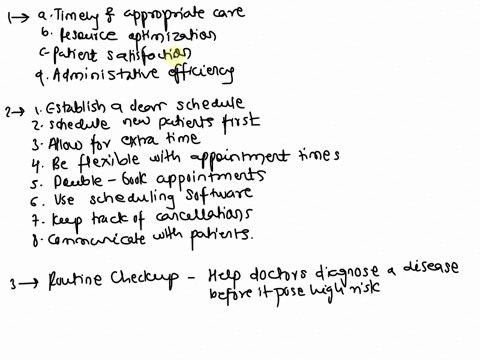 1→ a. Timely & appropriate care
b. Resource optimization
c. Patient satisfaction
q. Administative efficiency
2→ 1. Establish a clear schedule
2. Schedule new patients first
3. Allow for extra time
4. Be flexible with appointment times
5. Double-book appointments
6. Use scheduling software
7. Keep track of cancellations
8. Communicate with patients.
3→ Routine Checkup - Help doctors diagnose a disease
before it pose high risk